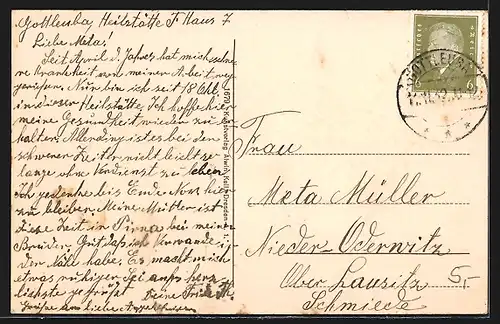 Gottleuba, Heilstätte F Haus 7
Liebe Meta!
Seit April d. Jahres hat mich schwere
Krankheit von meiner Arbeit weg
gerissen. Nun bin ich seit 18 Okt.
in dieser Heilstätte. Ich hoffe hier
meine Gesundheit wieder zu er-
halten. Allerdings ist es bei den
schweren Zeiten nicht leicht so
lange ohne Verdienst zu leben
Ich gedenke bis Ende Nov. hier
zu bleiben. Meine Mutter ist
diese Zeit in Pirna bei meinem
Bruder. Gut daß ich Verwandte in
der Nähe habe. Es macht mich
etwas ruhiger. Sei aufs herz-
lichste gegrüßt
Deine Frida
Grüße an Liebe
1679 Kunstverlag Alwin Keil, Dresden-A. 1.
6
Frau
Meta Müller
Nieder-Oderwitz
Ober Lausitz
Schmiede
5,-